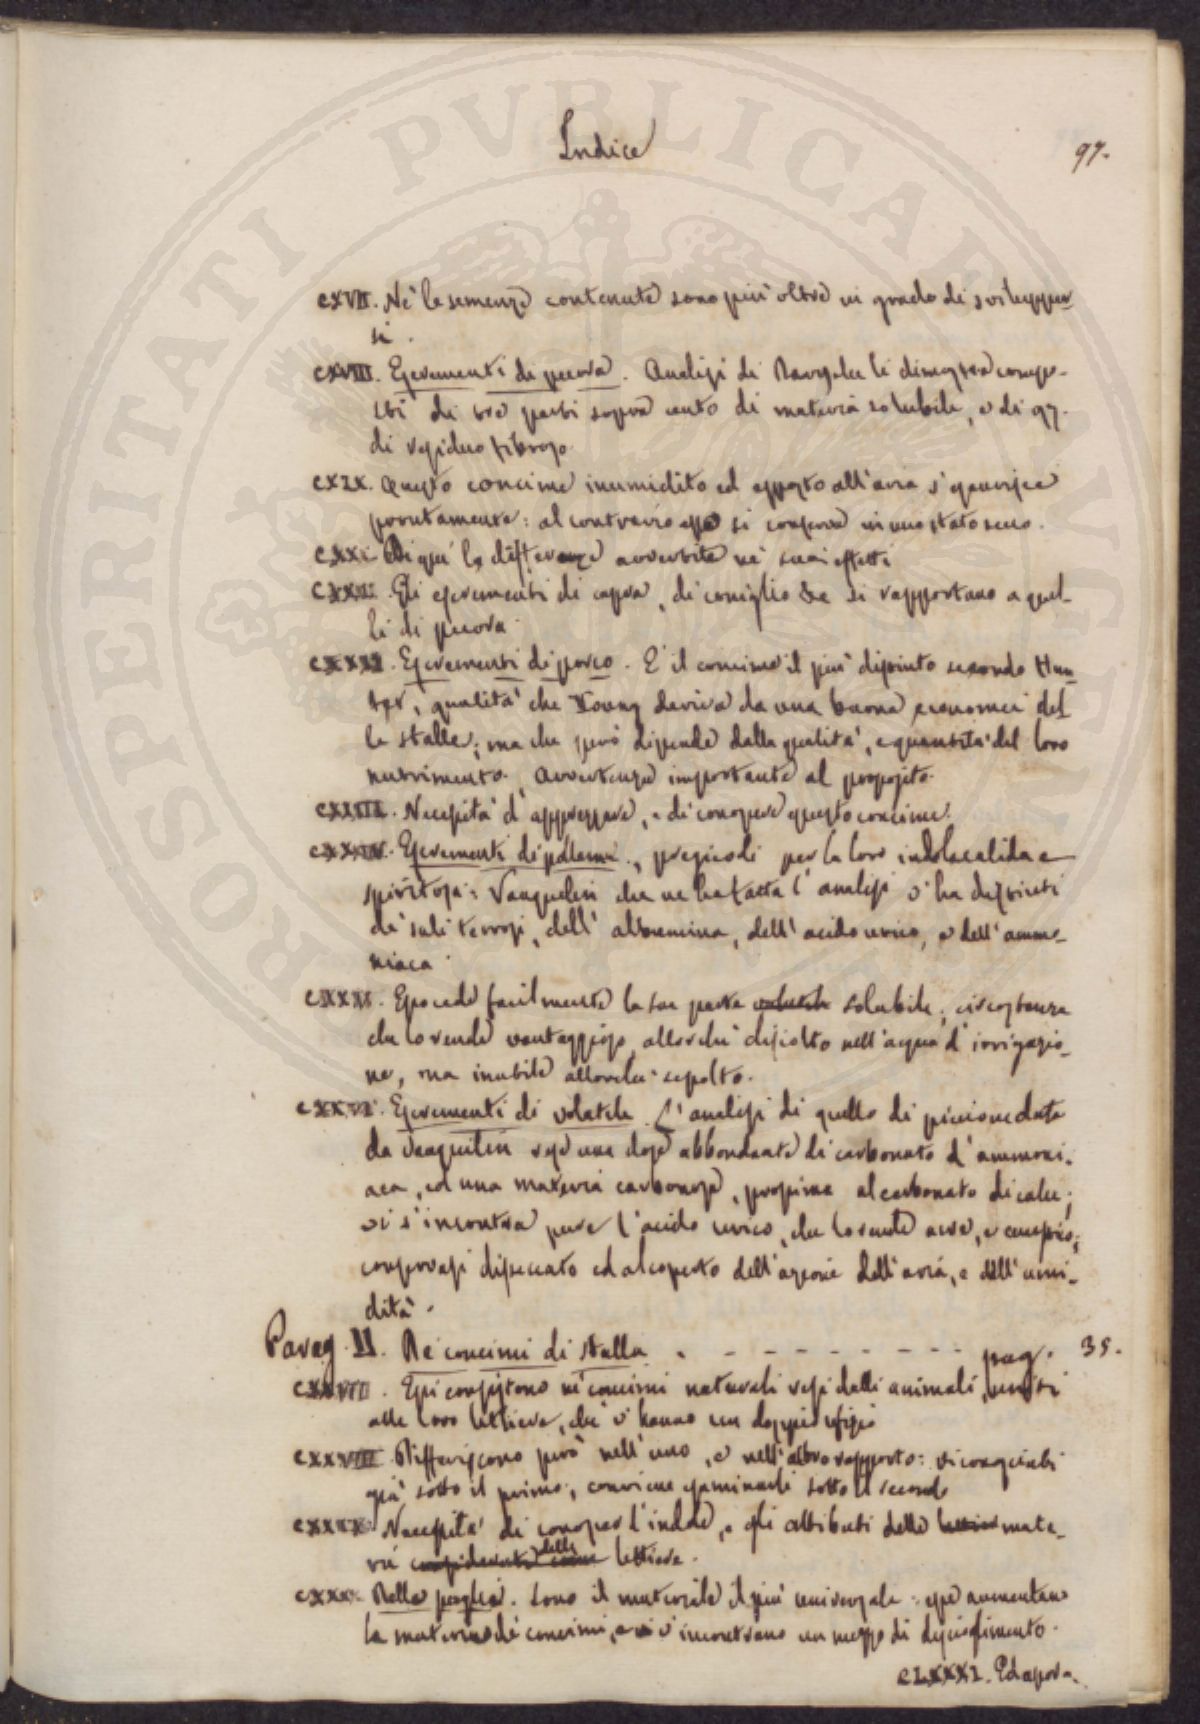 PROSPERITATI PVBLICAE AVGENDAE
Indice
97.
CXVII. Nè le semenze contenute sono più oltre in grado di sviluppar-
si.
CXVIII. Escrementi di pecora. Analisi di li dimostra compo-
sti di tre parti sopra cento di materia solubile, e di 97.
di residuo fibroso.
CXIX. Questo concime inumidito ed esposto all'aria s'
prontamente: al contrario esso si conserva in uno stato secco.
CXX. Di qui la differenza avvertita ne' suoi effetti
CXXI. Gli escrementi di capra, di coniglio &c si rapportano a quel-
li di pecora.
CXXII. Escrementi di porco. È il concime il più distinto secondo Hun-
ter, qualità che Young deriva da una buona economia del-
le stalle; ma che però dipende dalla qualità, e quantità del loro
nutrimento. Avvertenza importante al proposito.
CXXIII. Necessità d'apprezzare, e di conoscere questo concime.
CXXIV. Escrementi di pollame, per la loro indole calida e
spiritosa: Vauquelin che ne ha fatta l'analisi v'ha
de' sali terrosi, dell'albumina, dell'acido urico, e dell'ammo-
niaca.
CXXV. facilmente la sua parte solubile; circostanza
che lo rende vantaggioso, allorchè disciolto nell'acqua d'irrigazio-
ne, ma inutile allorchè sepolto.
CXXVI. Escrementi di volatile. L'analisi di quello di piccione data
da Vauquelin una dose abbondante di carbonato d'ammoni-
aca, ed una materia carbonosa, prossima al carbonato di calce;
vi s'incontra pure l'acido urico, che lo rende acre, e caustico;
conservasi disseccato ed al coperto dell'azione dell'aria, e dell'umi-
dità.
Parag. II. De' concimi di stalla . - - - - - - - - - pag. 35.
CXXVII. Essi consistono ne' concimi naturali resi dalli animali, uniti
alle loro lettiere, che v'hanno un doppio ufizio
CXXVIII. Differiscono però nell'uno, e nell'altro rapporto:
già sotto il primo, conviene esaminarli sotto il secondo
CXXIX. Necessità di conoscer l'indole, e gli attributi delle mate-
rie delle lettiere.
CXXX. Delle paglie. Sono il materiale il più universale: esse aumentano
la materia de' concimi, e v'incontrano un mezzo di
CLXXXI. Ed